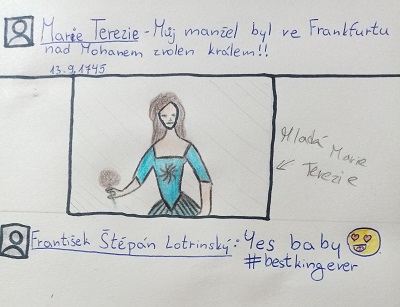 Marie Terezie - Můj manžel byl ve Frankfurtu
nad Mohanem zvolen králem!!
13.9.1745
Mladá Marie
Terezie
František Štěpán Lotrinský: Yes baby
#bestkingever